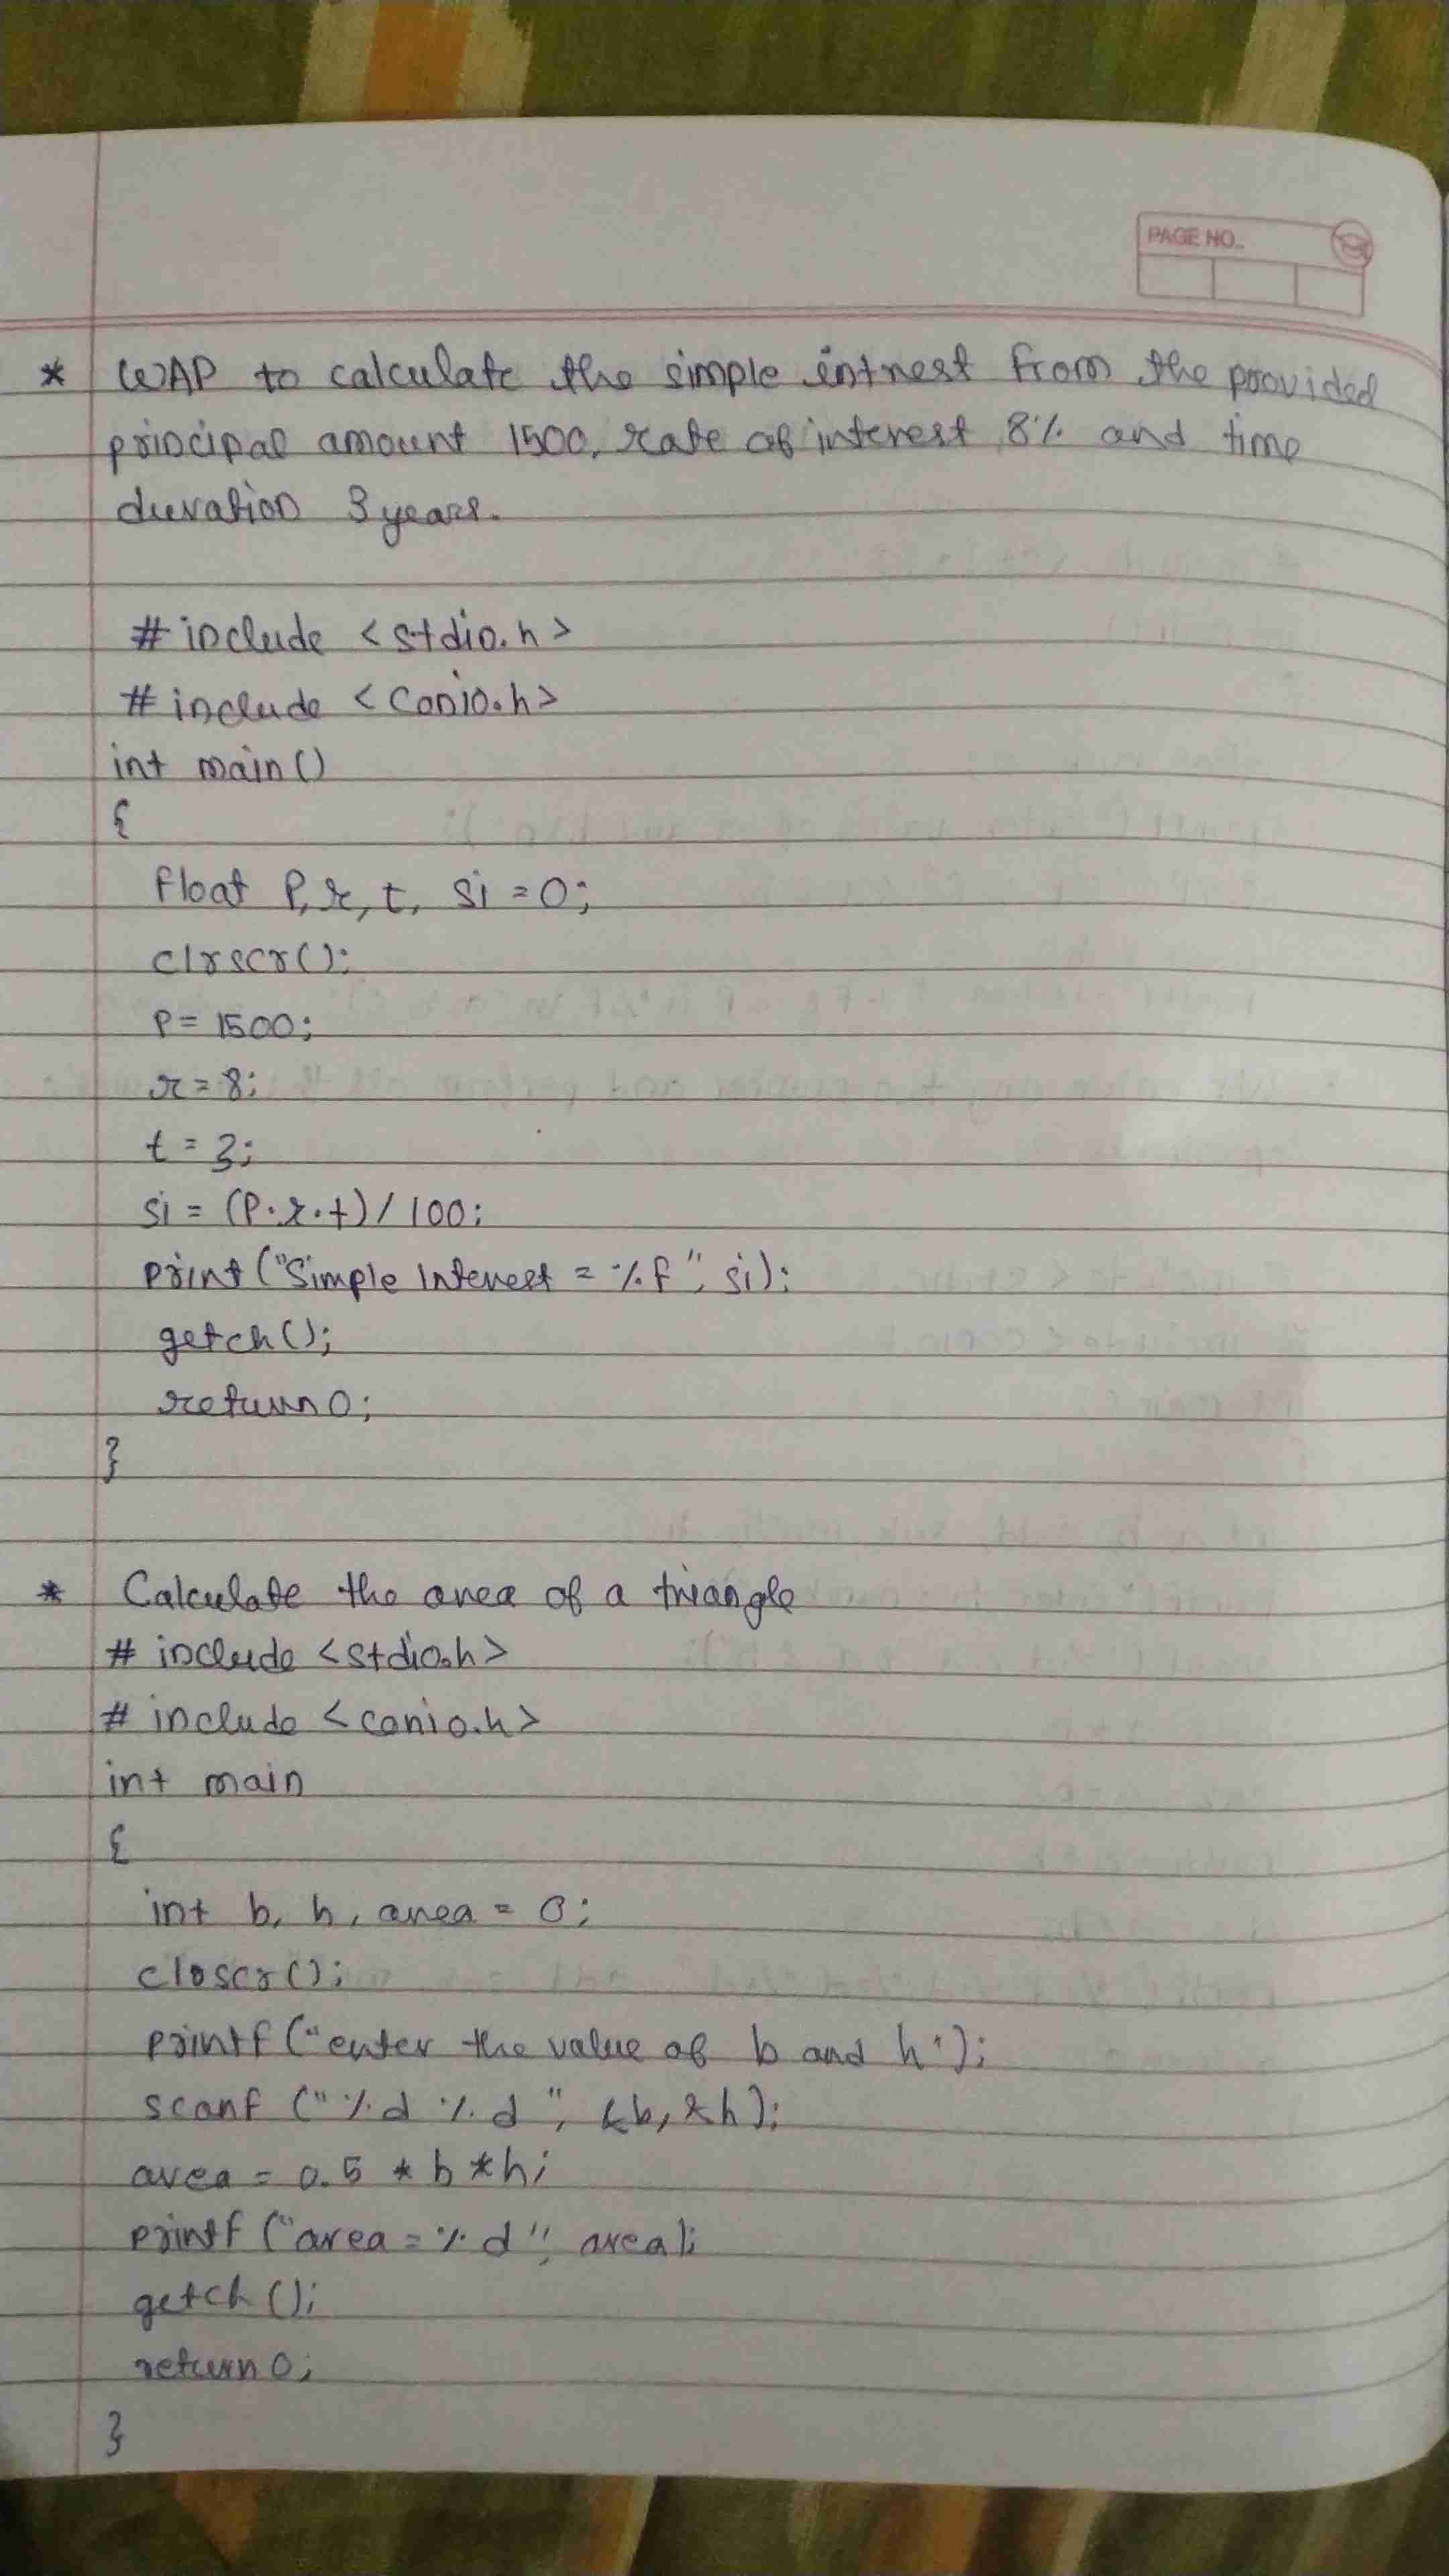 PAGE NO..
* WAP to calculate the simple intrest from the provided
principal amount 1500, rate of interest 8% and time
duration 3 years.
# include <stdio.h>
# include <conio.h>
int main ()
{
float P, r, t, si = 0;
clrscr();
P = 1500;
r = 8;
t = 3;
si = (P.r.t) / 100;
print ("Simple Interest = %f", si);
getch ();
return 0;
}
* Calculate the area of a triangle
# include <stdio.h>
# include <conio.h>
int main
{
int b, h, area = 0;
clrscr ();
printf ("enter the value of b and h");
scanf ("%d %d", &b, &h);
area = 0.5 * b * h;
printf ("area = %d", area);
getch ();
return 0;
}